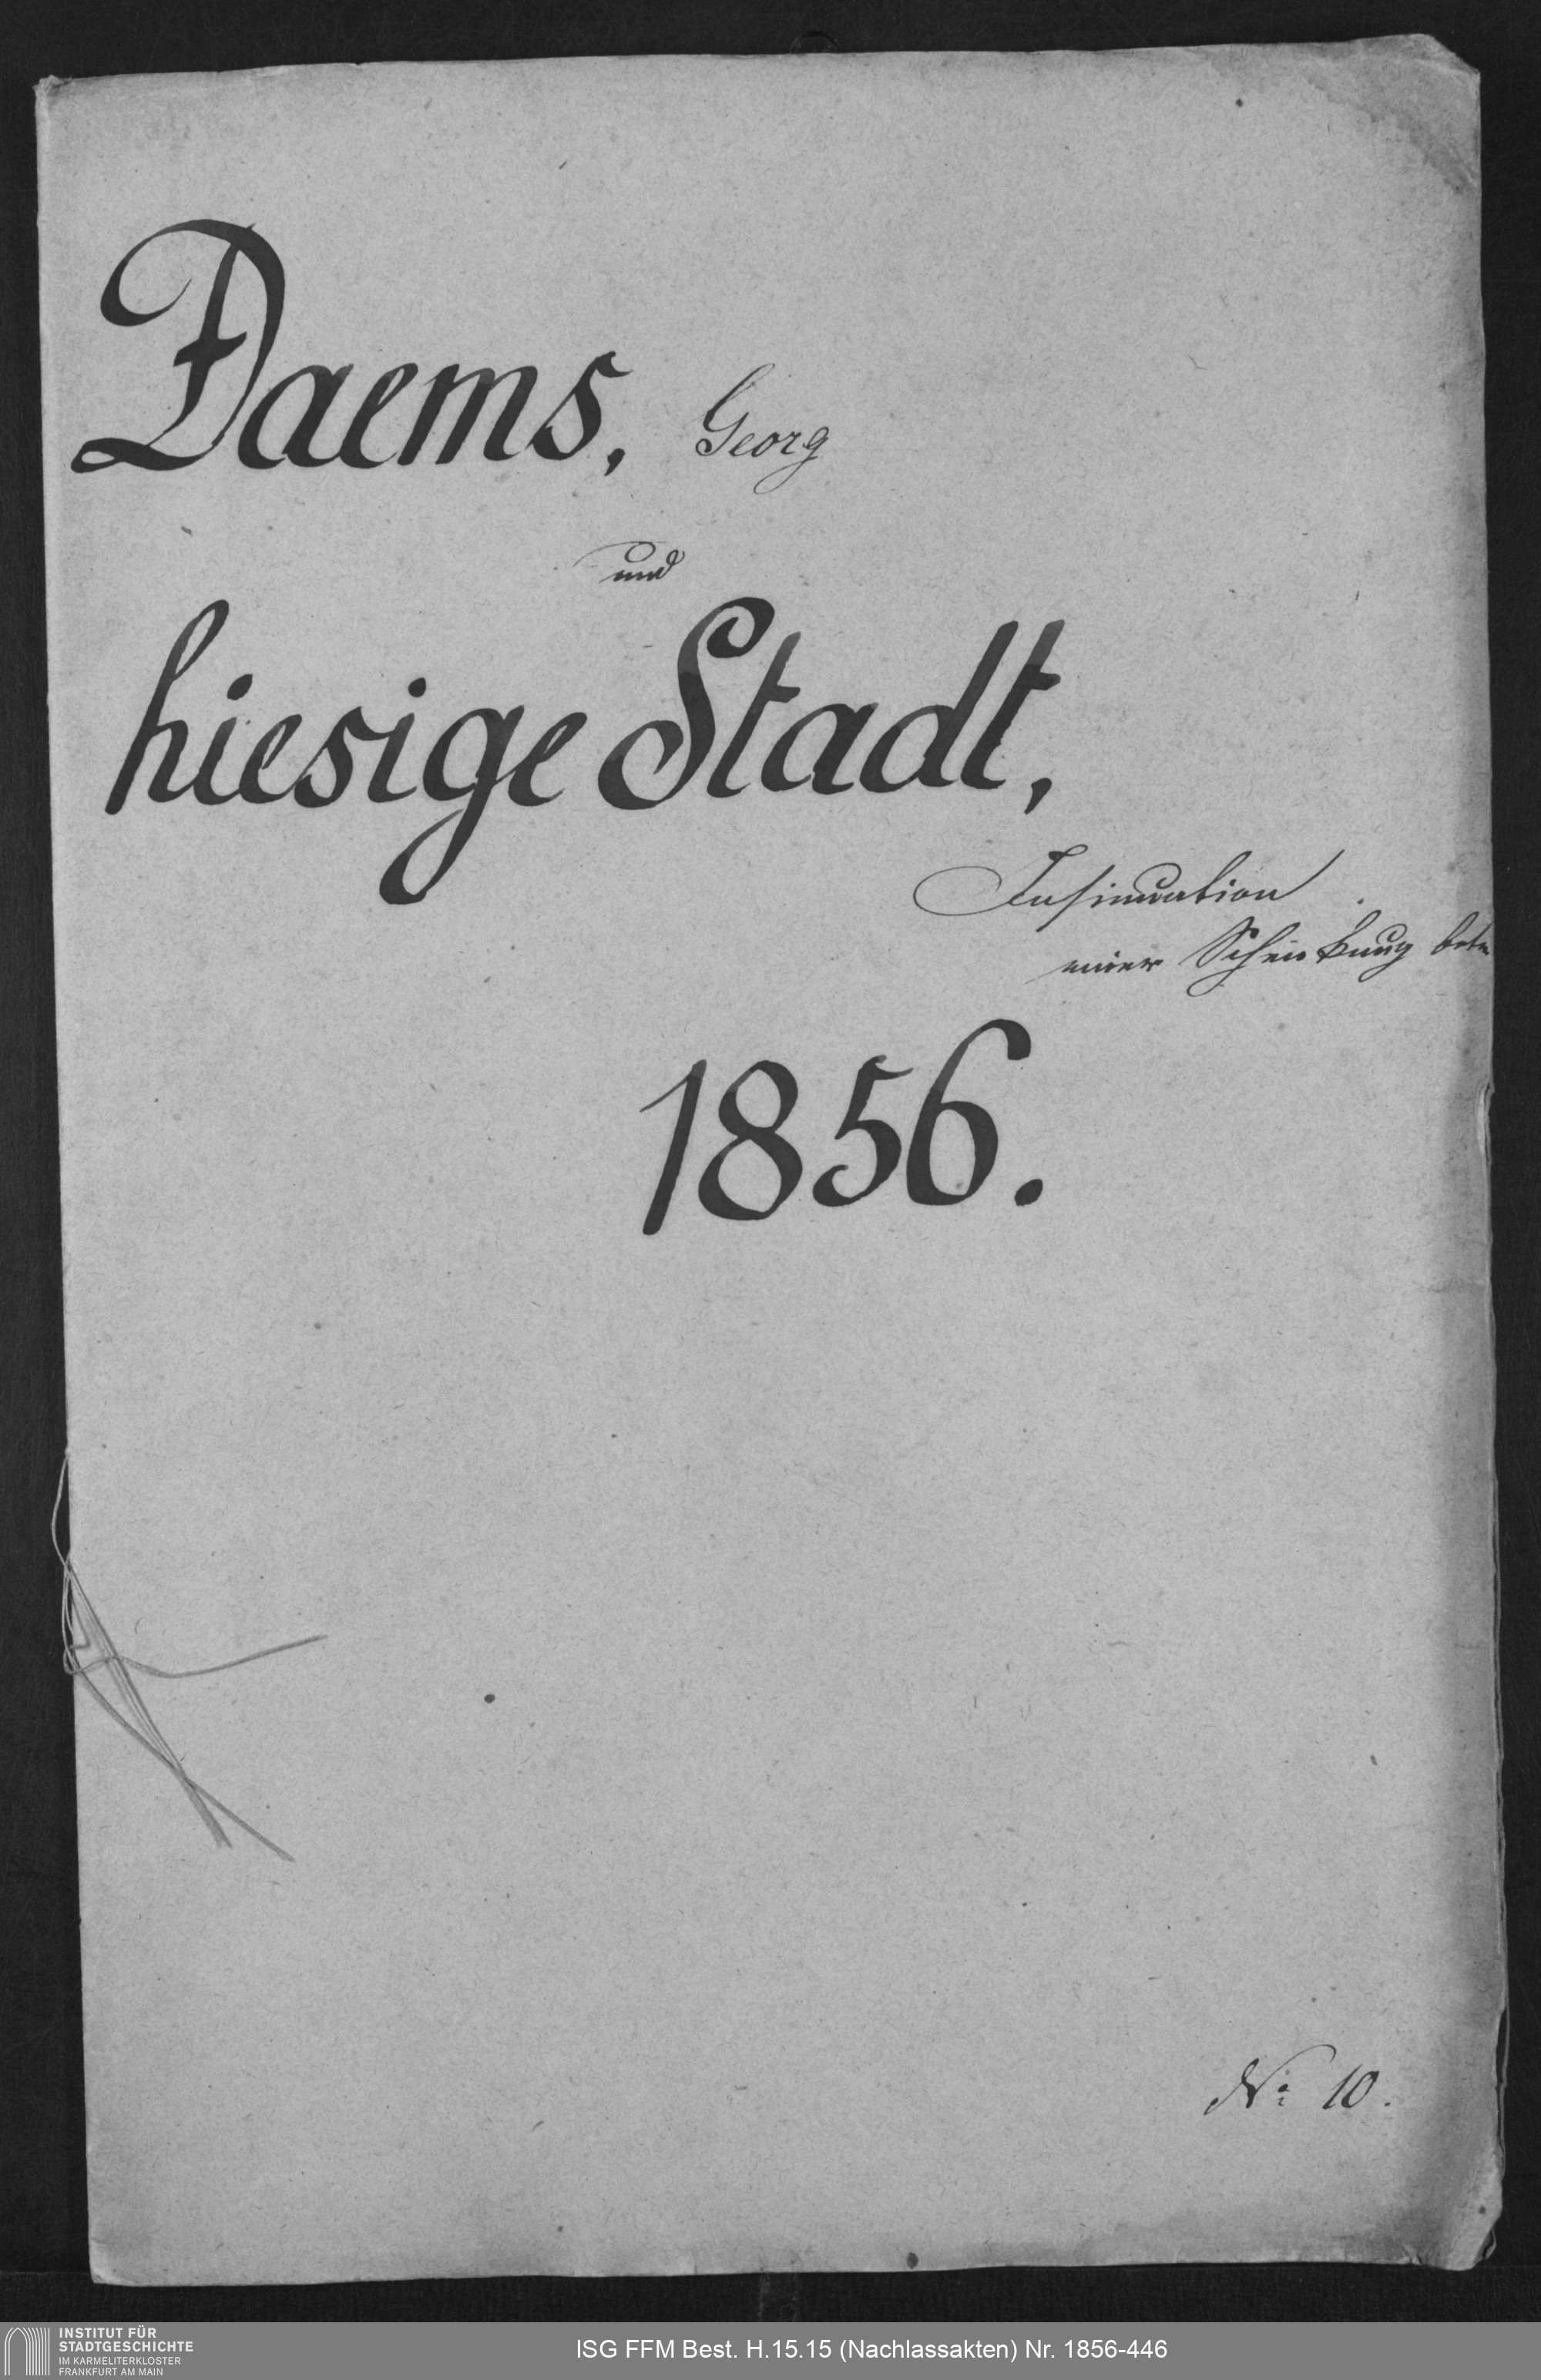 Daems, Georg
und
hiesige Stadt,
Insinuation
einer Schenkung betr
1856.
No 10.
INSTITUT FÜR
STADTGESCHICHTE
IM KARMELITERKLOSTER
FRANKFURT AM MAIN
ISG FFM Best. H.15.15 (Nachlassakten) Nr. 1856-446